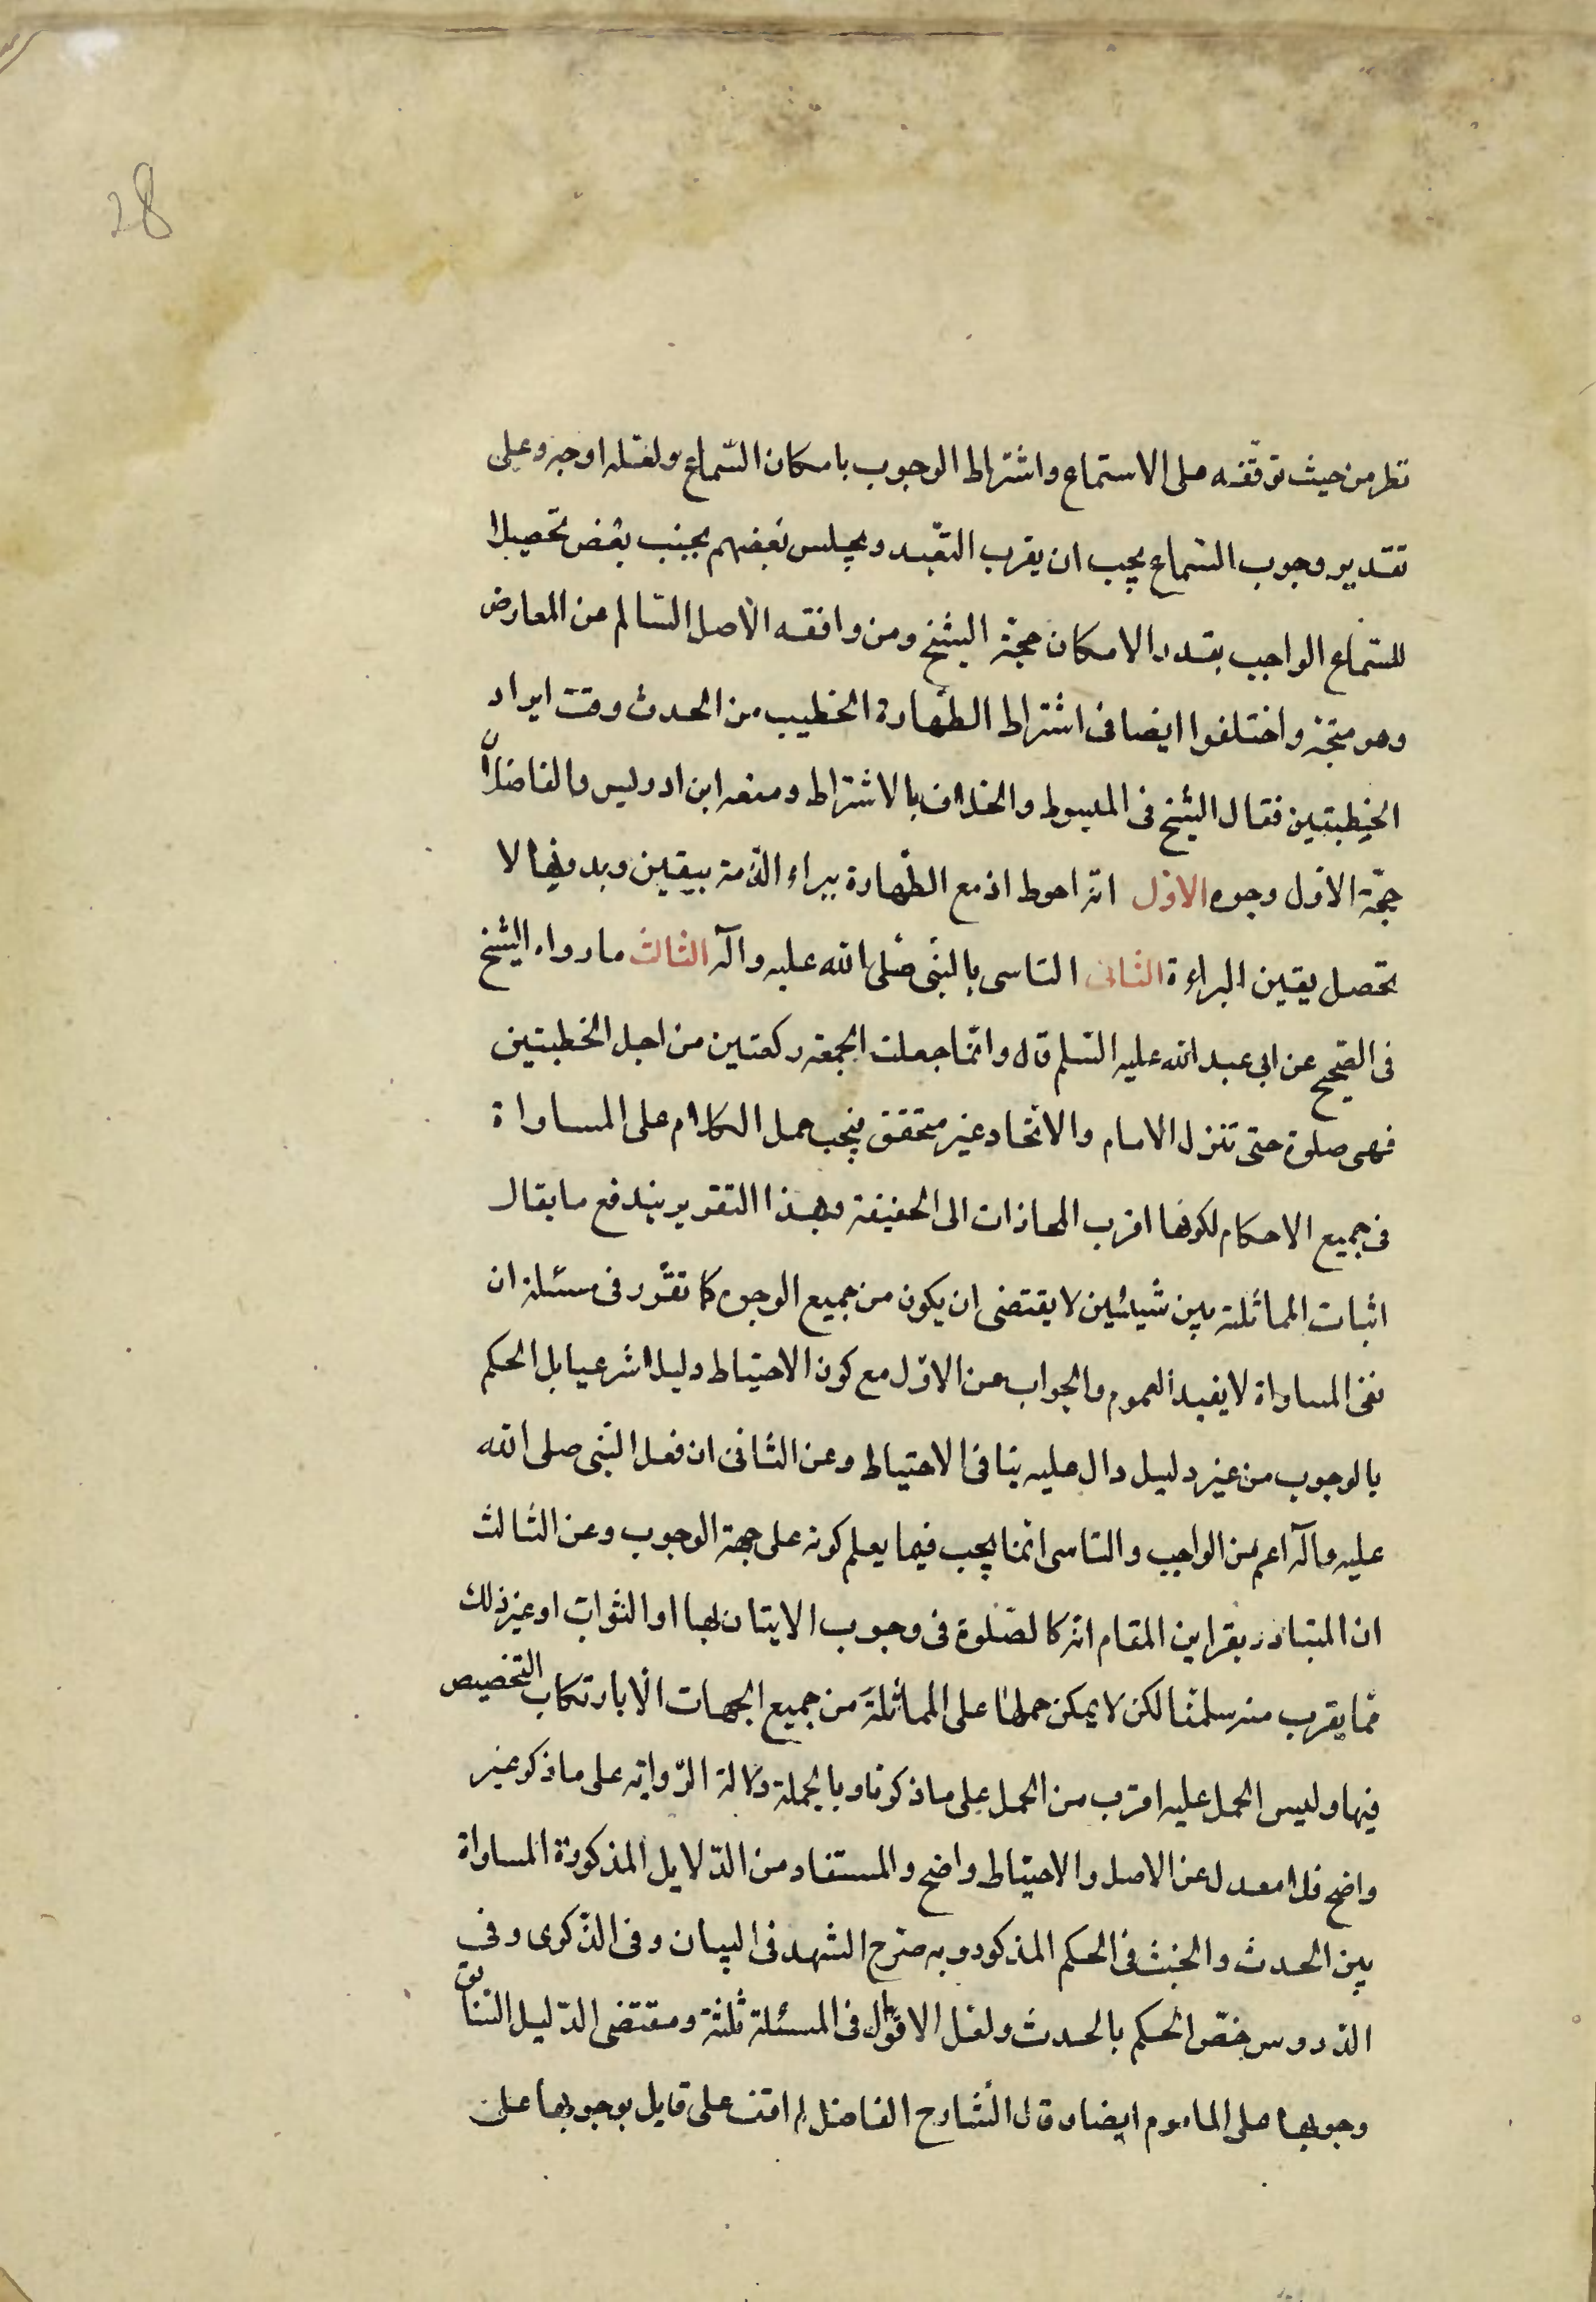 28
نظر من حيث توقفه على الاستماع واشتراط الوجوب بامكان السّماع ولعله اوجه وعلى
تقدير وجوب السّماع يجب ان يقرب البعيد ويجلس بعضهم بجنب بعض تحصيلا
للسّماع الواجب بقدر الامكان حجّة الشيخ ومن وافقه الاصل السّالم عن المعارض
وهو متجّه واختلفوا ايضا فى اشتراط الطّهارة الخطيب من الحدث وقت ايراد
الخطبتين فقال الشّيخ فى المبسوط والخلاف بالاشتراط ومنعه ابن ادريس والفاضلان
حجّة الاوّل وجوه الاوّل انّه احوط اذ مع الطّهارة يبراء الذّمة بيقين وبدونها لا
تحصل يقين البراءة الثانى التاسى بالنبّى صلّى الله عليه وآله الثالث ما رواه الشّيخ
فى الصّحيح عن ابى عبد الله عليه السّلم قال وانّما جعلت الجمعة ركعتين من اجل الخطبتين
فهى صلوة حتى تنزل الامام والاتّحاد غير متحقق فيجب حمل الكلام على المساواة
فى جميع الاحكام لكونها اقرب المجازات الى الحقيقة وبهذا التقرير يندفع ما يقال
اثبات المماثلة بين شيئين لا يقتضى ان يكون من جميع الوجوه كما تقرّر فى مسئلة ان
نفى المساواة لا يفيد العموم والجواب عن الاوّل مع كون الاحتياط دليلا شرعيا بل الحكم
بالوجوب من غير دليل دال عليه ينافى الاحتياط وعن الثّانى ان فعل النّبى صلى الله
عليه وآله اعم من الواجب والتاسى انّما يجب فيما يعلم كونه على جهة الوجوب وعن الثّالث
ان المتبادر بقراين المقام انّه كالصّلوة فى وجوب الايتان بها او الثواب او غير ذلك
ممّا يقرب منه سلمنا لكن لا يمكن حملها على المماثلة من جميع الجهات الّا بارتكاب التخصيص
فيها وليس الحمل عليه اقرب من الحمل على ما ذكرنا وبالجملة دلالة الرّواية على ما ذكر غير
واضح فلا معدل عن الاصل والاحتياط واضح والمستفاد من الدّلايل المذكورة المساواة
بين الحدث والخبث فى الحكم المذكور وبه صرّح الشهيد فى البيان وفى الذّكرى وفى
الدّروس خصّ الحكم بالحدث ولعل الاقوال فى المسئلة ثلثة ومقتضى الدّليل السّابق
وجوبها على الماموم ايضا وقال الشّارح الفاضل لم اقف على قايل بوجوبها على